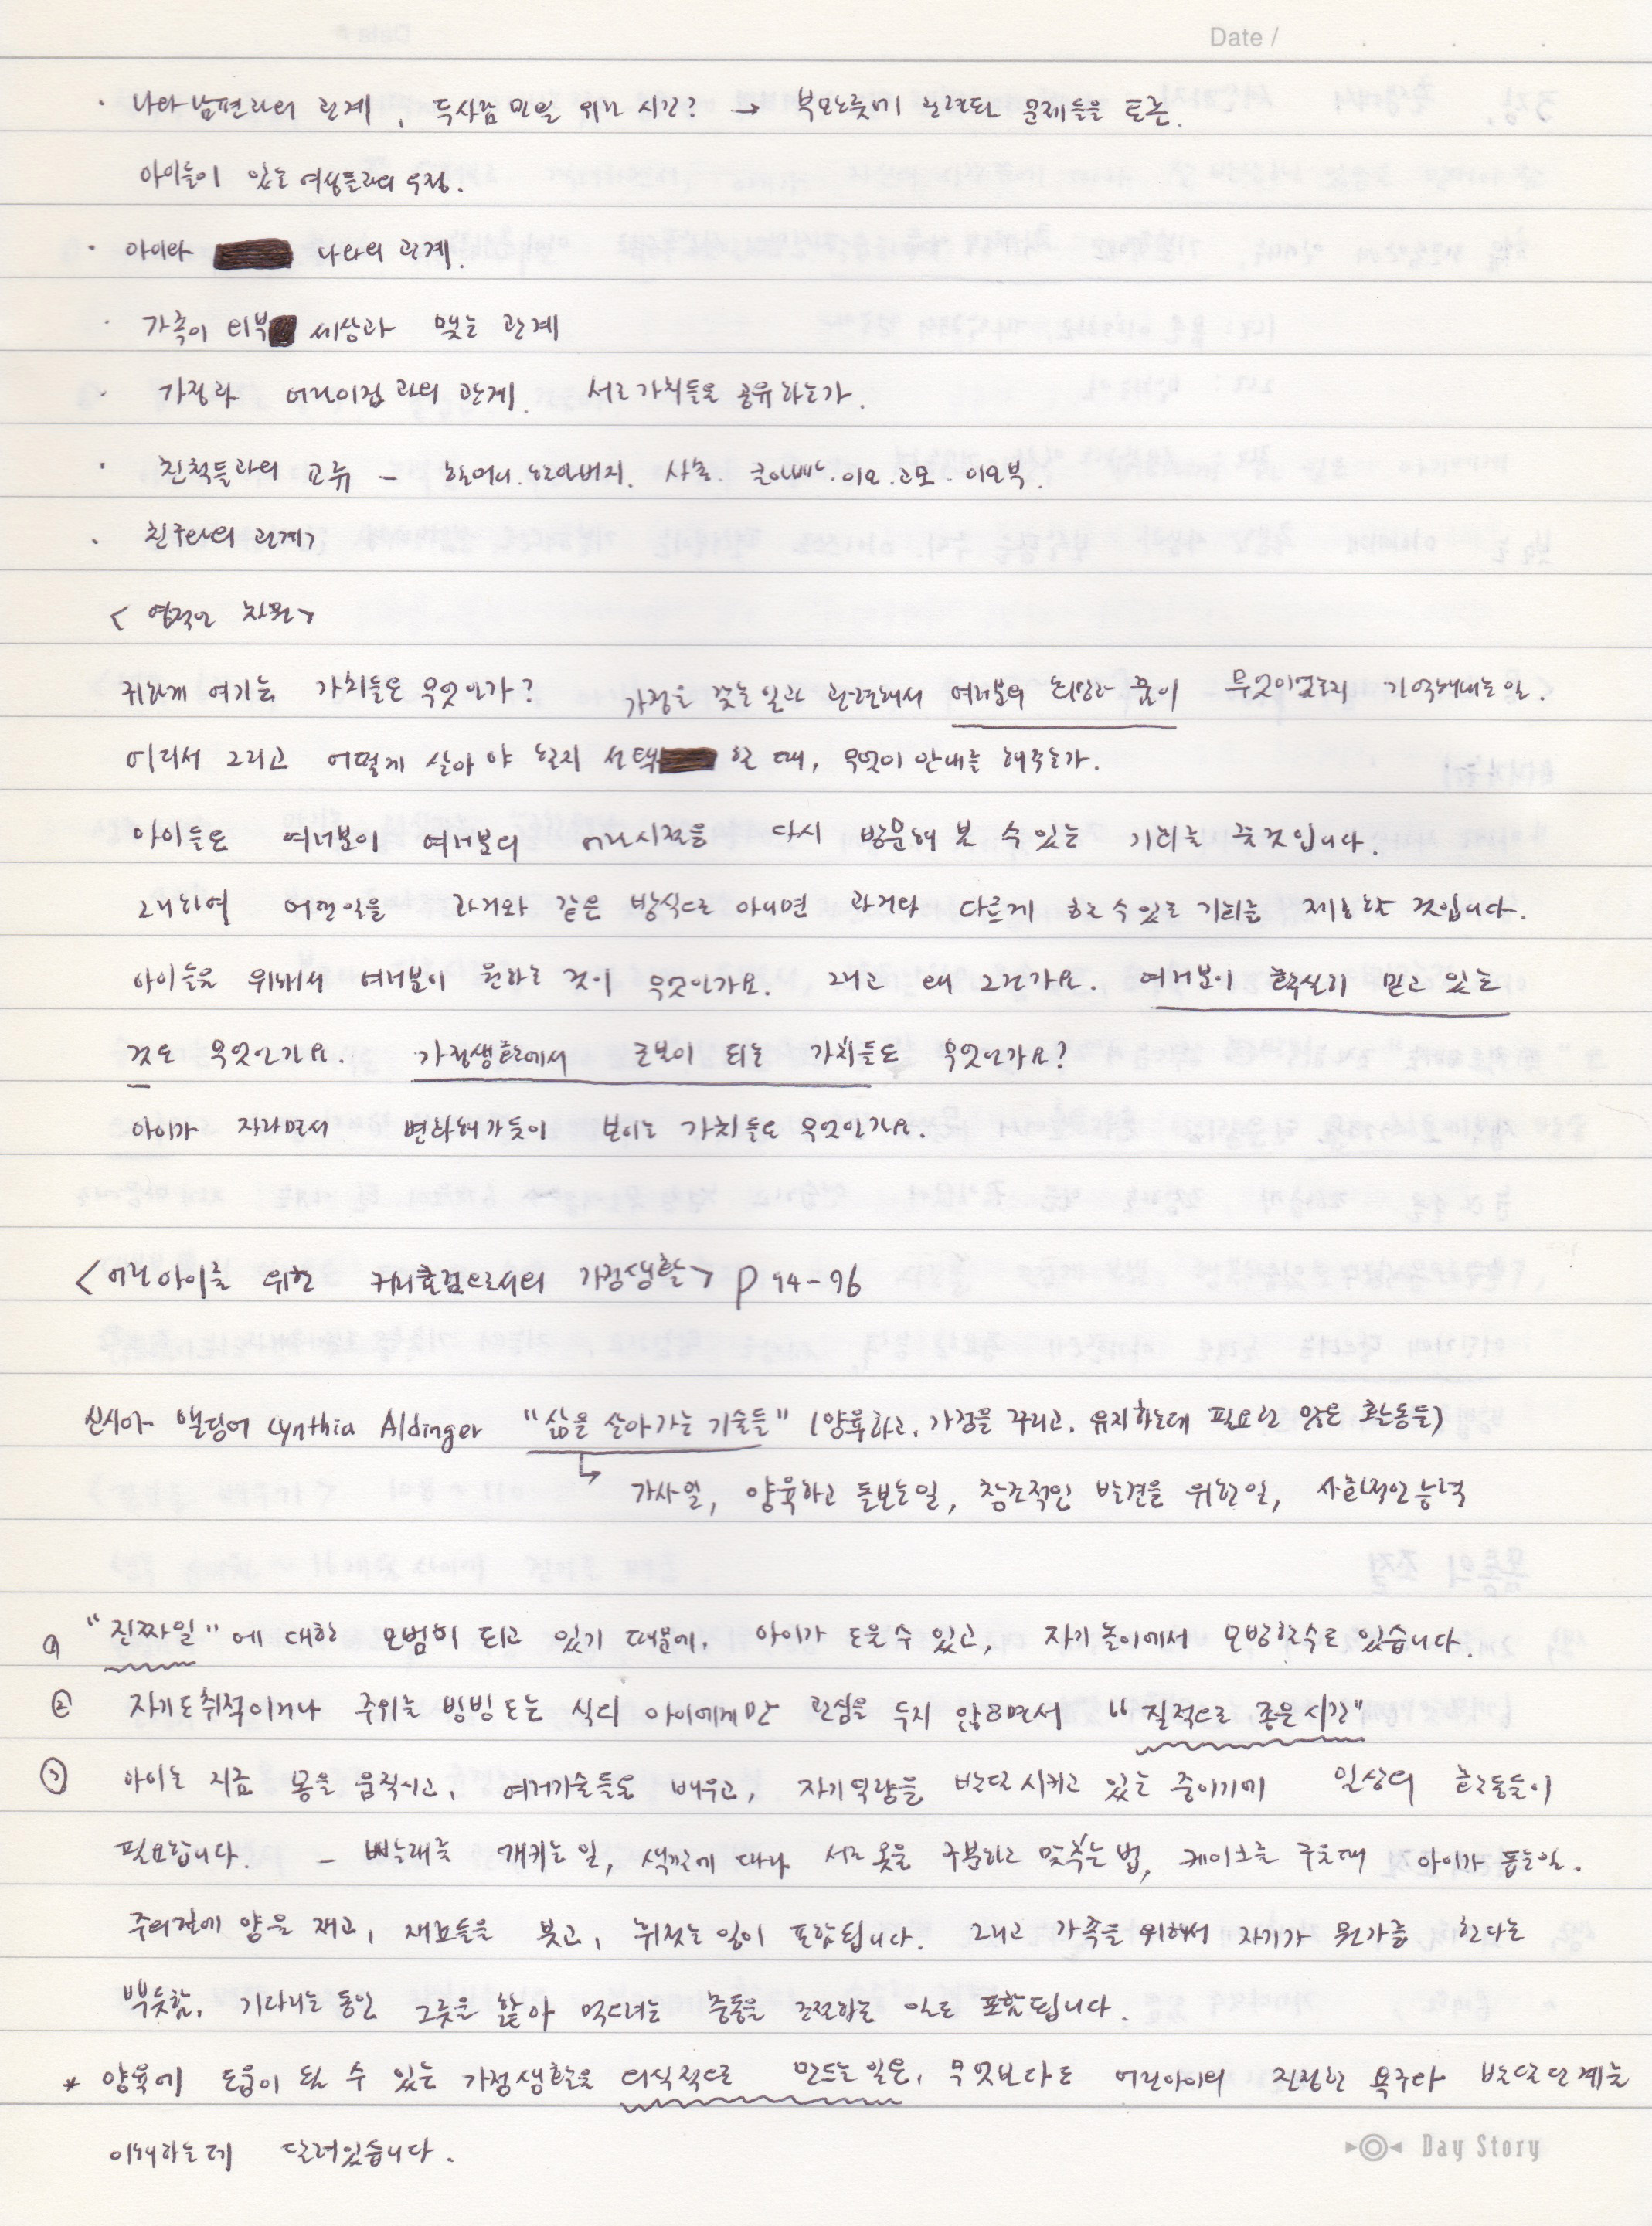 Date /
· 나와 남편과의 관계, 두사람 만을 위한 시간? → 부모노릇에 관련된 문제들을 토론.
아이들이 있는 여성들과의 우정.
· 아이와 나와의 관계.
· 가족이 외부 세상과 맺는 관계
· 가정과 어린이집 과의 관계. 서로 가치들을 공유하는가.
· 친척들과의 교류 - 할머니. 할아버지. 사촌. 큰아빠. 이모. 고모. 이모부.
· 친구와의 관계?
< 영적인 차원>
귀하게 여기는 가치들은 무엇인가? 가정을 갖는 일과 관련해서 여러분의 희망과 꿈이 무엇이었는지 기억해내는 일.
어디서 그리고 어떻게 살아 야 할지 선택 할 때, 무엇이 안내를 해주는가.
아이들은 여러분이 여러분의 어린시절을 다시 방문해 볼 수 있는 기회를 줄 것입니다.
그리하여 어떤일을 과거와 같은 방식으로 아니면 과거와 다르게 할 수 있는 기회를 제공할 것입니다.
아이들을 위해서 여러분이 원하는 것이 무엇인가요. 그리고 왜 그런가요. 여러분이 확실히 믿고 있는
것은 무엇인가요. 가정생활에서 근본이 되는 가치들은 무엇인가요?
아이가 자라면서 변화해가듯이 보이는 가치들은 무엇인가요.
<어린 아이를 위한 커리큘럼으로서의 가정생활> p 94-96
신시아 앨딩어 Cynthia Aldinger "삶을 살아가는 기술들" (양육하고, 가정을 꾸리고, 유지하는데 필요한 많은 활동들)
↳ 가사일, 양육하고 돌보는일, 창조적인 발견을 위한일, 사회적인 능력
① "진짜일" 에 대한 모범이 되고 있기 때문에. 아이가 도울 수 있고, 자기 놀이에서 모방할수도 있습니다.
② 자기도취적이거나 주위를 빙빙 도는 식의 아이에게만 관심을 두지 않으면서 "질적으로 좋은 시간"
③ 아이는 지금 몸을 움직이고, 여러기술들을 배우고, 자기역량을 발달 시키고 있는 중이기에 일상의 활동들이
필요합니다. - 빨래를 개키는 일, 색깔에 따라 서로 옷을 구분하고 맞추는 법, 케이크를 구울때 아이가 돕는일.
주의깊게 양을 재고, 재료들을 붓고, 휘젓는 일이 포함됩니다. 그리고 가족을 위해서 자기가 뭔가를 한다는
뿌듯함, 기다리는 동안 그릇을 핥아 먹으려는 충동을 조절하는 일도 포함됩니다.
* 양육에 도움이 될 수 있는 가정생활을 의식적으로 만드는 일은, 무엇보다도 어린아이의 진정한 욕구와 발달단계를
이해하는데 달려있습니다.
Day Story